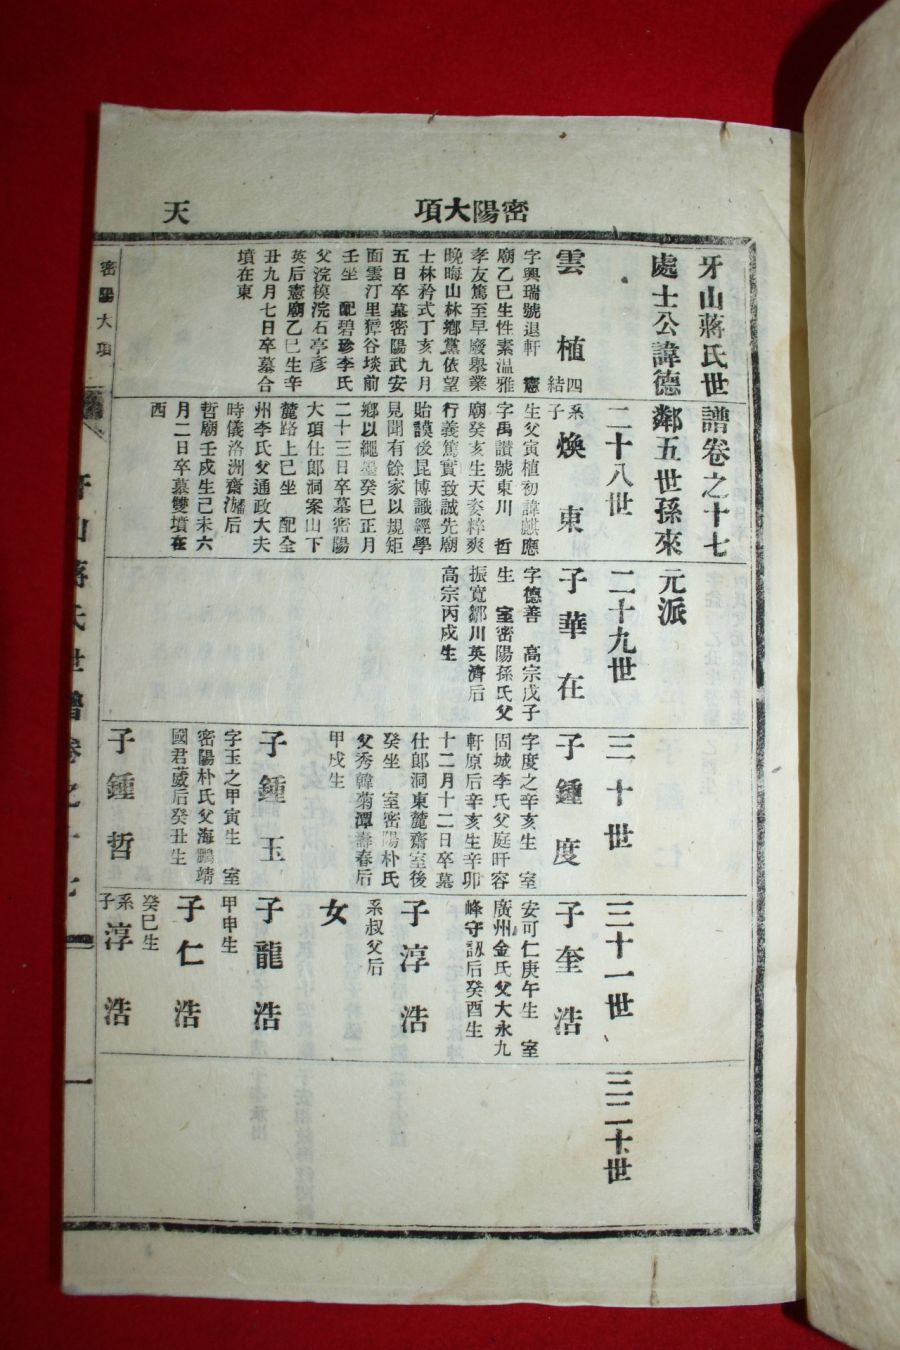 密陽大項
天
牙山蔣氏世譜卷之十七
處士公諱德鄰五世孫來元派
雲植
四
結
字興瑞號退軒 憲
廟乙巳生性素温雅
孝友篤至早廢擧業
晩晦山林鄉黨依望
士林矜式丁亥九月
五日卒墓密陽武安
面雲汀里獐谷埮前
壬坐 配碧珍李氏
父浣模浣石亭彦
英后憲廟乙巳生辛
丑九月七日卒墓合
墳在東
二十八世
系子煥東
生父寅植初諱麒應
字禹讃號東川 哲
廟癸亥生天姿粹爽
行義篤實致誠先廟
貽謨後昆博識經學
見聞有餘家以規矩
鄉以繩墨癸巳正月
二十三日卒墓密陽
大項仕郎洞案山下
麓路上巳坐 配全
州李氏父通政大夫
時儀洛洲齋潘后
哲廟壬戌生己未六
月二日卒墓雙墳在
西
二十九世
子華在
字德善 高宗戊子
生 室密陽孫氏父
振寬鄒川英濟后
高宗丙戌生
三十世
子鍾度
字度之辛亥生 室
固城李氏父庭旰容
軒原后辛亥生辛卯
十二月十二日卒墓
仕郎洞東麓齋室後
癸坐 室密陽朴氏
父秀韓菊潭壽春后
甲戌生
子鍾玉
字玉之甲寅生 室
密陽朴氏父海鵬靖
國君葳后癸丑生
子鍾哲
三十一世
子奎浩
安可仁庚午生 室
廣州金氏父大永九
峰守訒后癸酉生
子淳浩
系叔父后
女
子龍浩
甲申生
子仁浩
癸巳生
系子淳浩
三十二世
密陽大項
牙山蔣氏世譜卷之十七
一